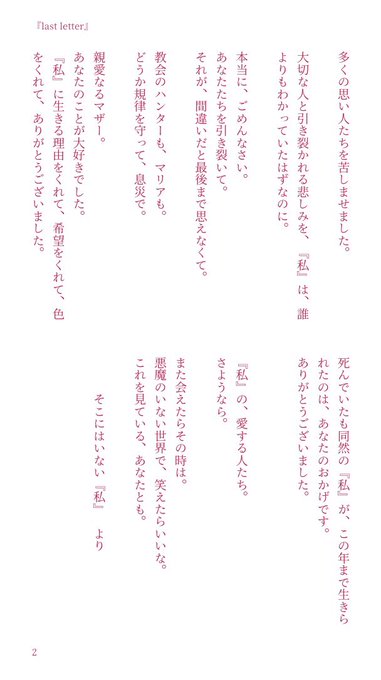 『last letter』
多くの思い人たちを苦しませました。
大切な人と引き裂かれる悲しみを、『私』は、誰
よりもわかっていたはずなのに。
本当に、ごめんなさい。
あなたたちを引き裂いて。
それが、間違いだと最後まで思えなくて。
教会のハンターも、マリアも。
どうか規律を守って、息災で。
親愛なるマザー。
あなたのことが大好きでした。
『私』に生きる理由をくれて、希望をくれて、色
をくれて、ありがとうございました。
死んでいたも同然の『私』が、この年まで生きら
れたのは、あなたのおかげです。
ありがとうございました。
『私』の、愛する人たち。
さようなら。
また会えたらその時は。
悪魔のいない世界で、笑えたらいいな。
これを見ている、あなたとも。
そこにはいない『私』 より
2